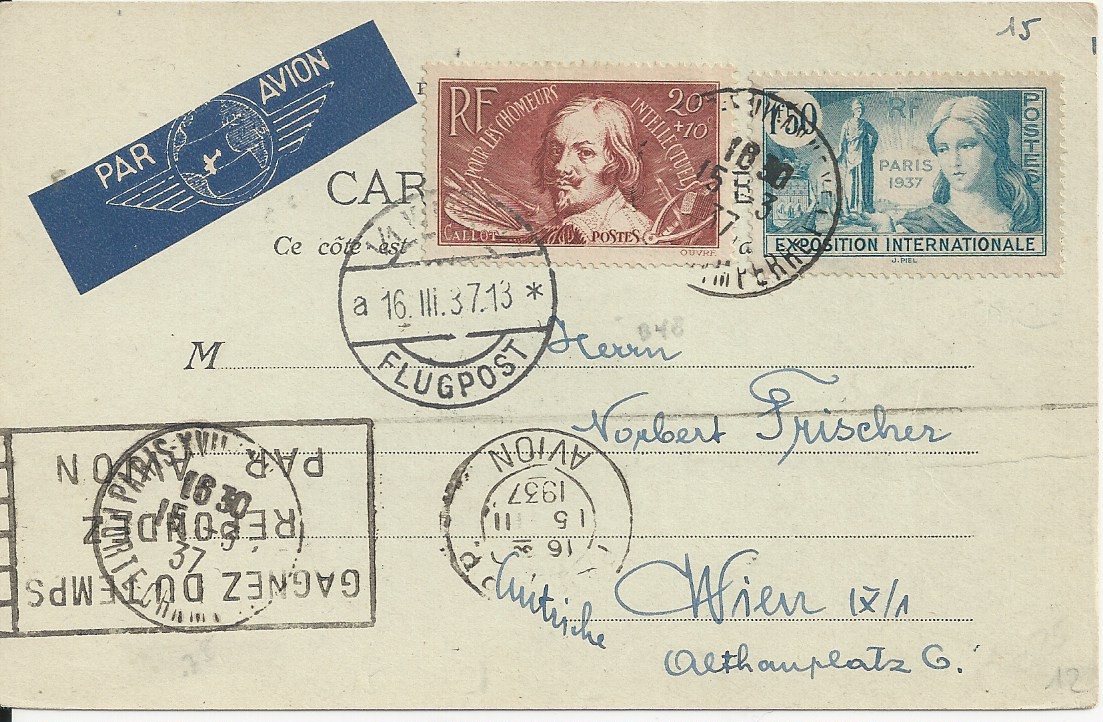 15
PAR AVION
RF
POUR LES CHÔMEURS INTELLECTUELS
20c
+10c
CALLOT
POSTES
OUVRÉ
1F50
RF
POSTES
PARIS
1937
EXPOSITION INTERNATIONALE
J. PIEL
16 30
15 3
37
CAR
Ce côté est
a 16.III.37.13 *
FLUGPOST
M
Herrn
Norbert Frischer
AVION
1937
15 III
16
PARIS XVII
16 30
15 3
37
GAGNEZ DU TEMPS
REPONDEZ
PAR AVION
Wien IX/1
Althanplatz 6.
12